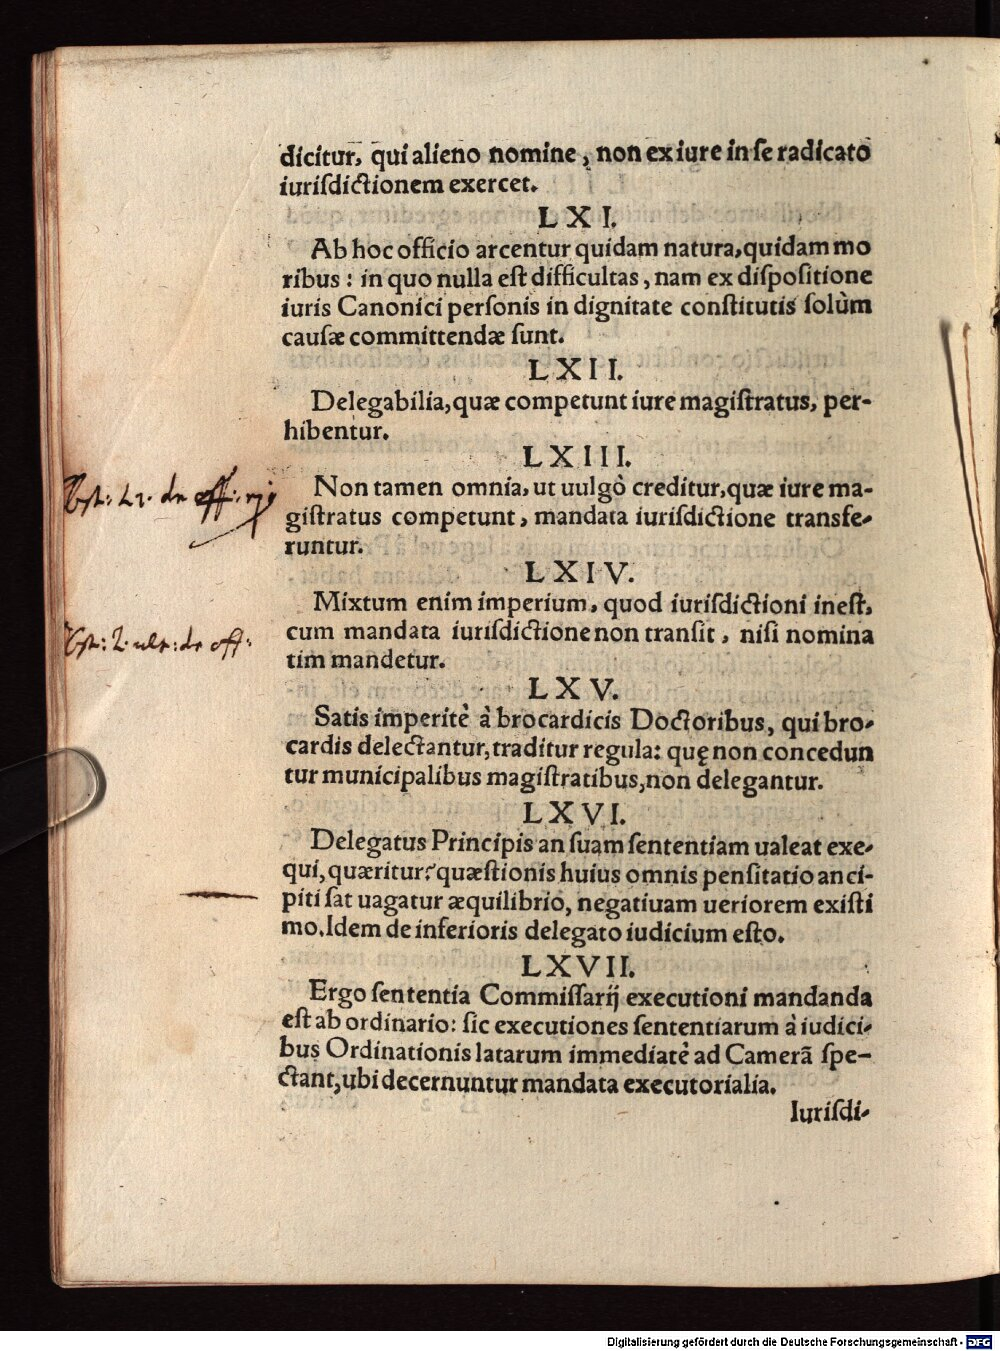 dicitur, qui alieno nomine, non ex iure in se radicato
iuriſdictionem exercet.
LXI.
Ab hoc officio arcentur quidam natura, quidam mo
ribus: in quo nulla eſt difficultas, nam ex diſpoſitione
iuris Canonici perſonis in dignitate conſtitutis ſolùm
cauſæ committendæ ſunt.
LXII.
Delegabilia, quæ competunt iure magiſtratus, per-
hibentur.
LXIII.
Non tamen omnia, ut uulgò creditur, quæ iure ma-
giſtratus competunt, mandata iuriſdictione transfe-
runtur.
LXIV.
Mixtum enim imperium, quod iuriſdictioni ineſt,
cum mandata iuriſdictione non tranſit, niſi nomina
tim mandetur.
LXV.
Satis imperitè à brocardicis Doctoribus, qui bro-
cardis delectantur, traditur regula: quę non concedun
tur municipalibus magiſtratibus, non delegantur.
LXVI.
Delegatus Principis an ſuam ſententiam ualeat exe-
qui, quæritur? quæſtionis huius omnis penſitatio anci-
piti ſat uagatur æquilibrio, negatiuam ueriorem exiſti
mo. Idem de inferioris delegato iudicium eſto.
LXVII.
Ergo ſententia Commiſſarij executioni mandanda
eſt ab ordinario: ſic executiones ſententiarum à iudici-
bus Ordinationis latarum immediatè ad Camerã ſpe-
ctant, ubi decernuntur mandata executorialia.
Iuriſdi-
Digitalisierung gefördert durch die Deutsche Forschungsgemeinschaft - DFG